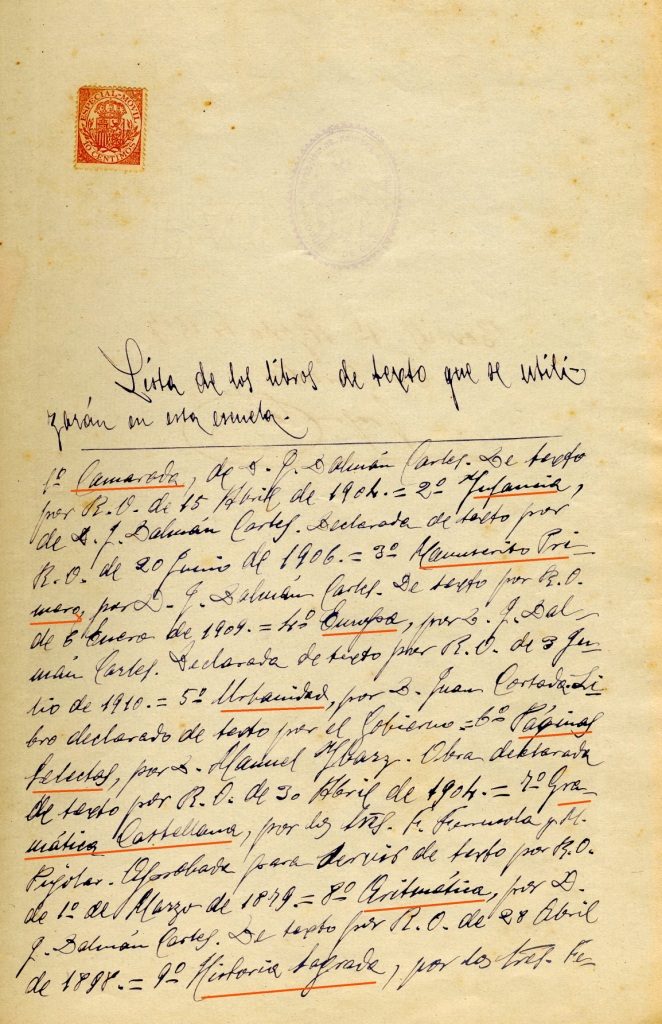 ESPECIAL MÓVIL
10 CENTIMOS
Lista de los libros de texto que se utili-
zarán en esta escuela.
1º Camarada, de D. J. Dalmáu Carles. De texto
por R. O. de 15 Abril de 1904. = 2º Infancia,
de D. J. Dalmáu Carles. Declarada de texto por
R. O. de 20 Junio de 1906. = 3º Manuscrito Pri-
mero, por D. J. Dalmáu Carles. De texto por R. O.
de 8 Enero de 1904. = 4º Europa, por D. J. Dal-
máu Carles. Declarada de texto por R. O. de 3 Ju-
lio de 1910. = 5º Urbanidad, por D. Juan Cortada. Li-
bro declarado de texto por el Gobierno = 6º Páginas
Selectas, por D. Manuel. Obra declarada
de texto por R. O. de 30 Abril de 1904. = 7º Gra-
mática Castellana, por los Sres. F. y M.
Pujolar. Aprobada para servir de texto por R. O.
de 1º de Marzo de 1879. = 8º Aritmética, por D.
J. Dalmáu Carles. De texto por R. O. de 28 Abril
de 1898. = 9º Historia Sagrada, por los Sres. Fe-